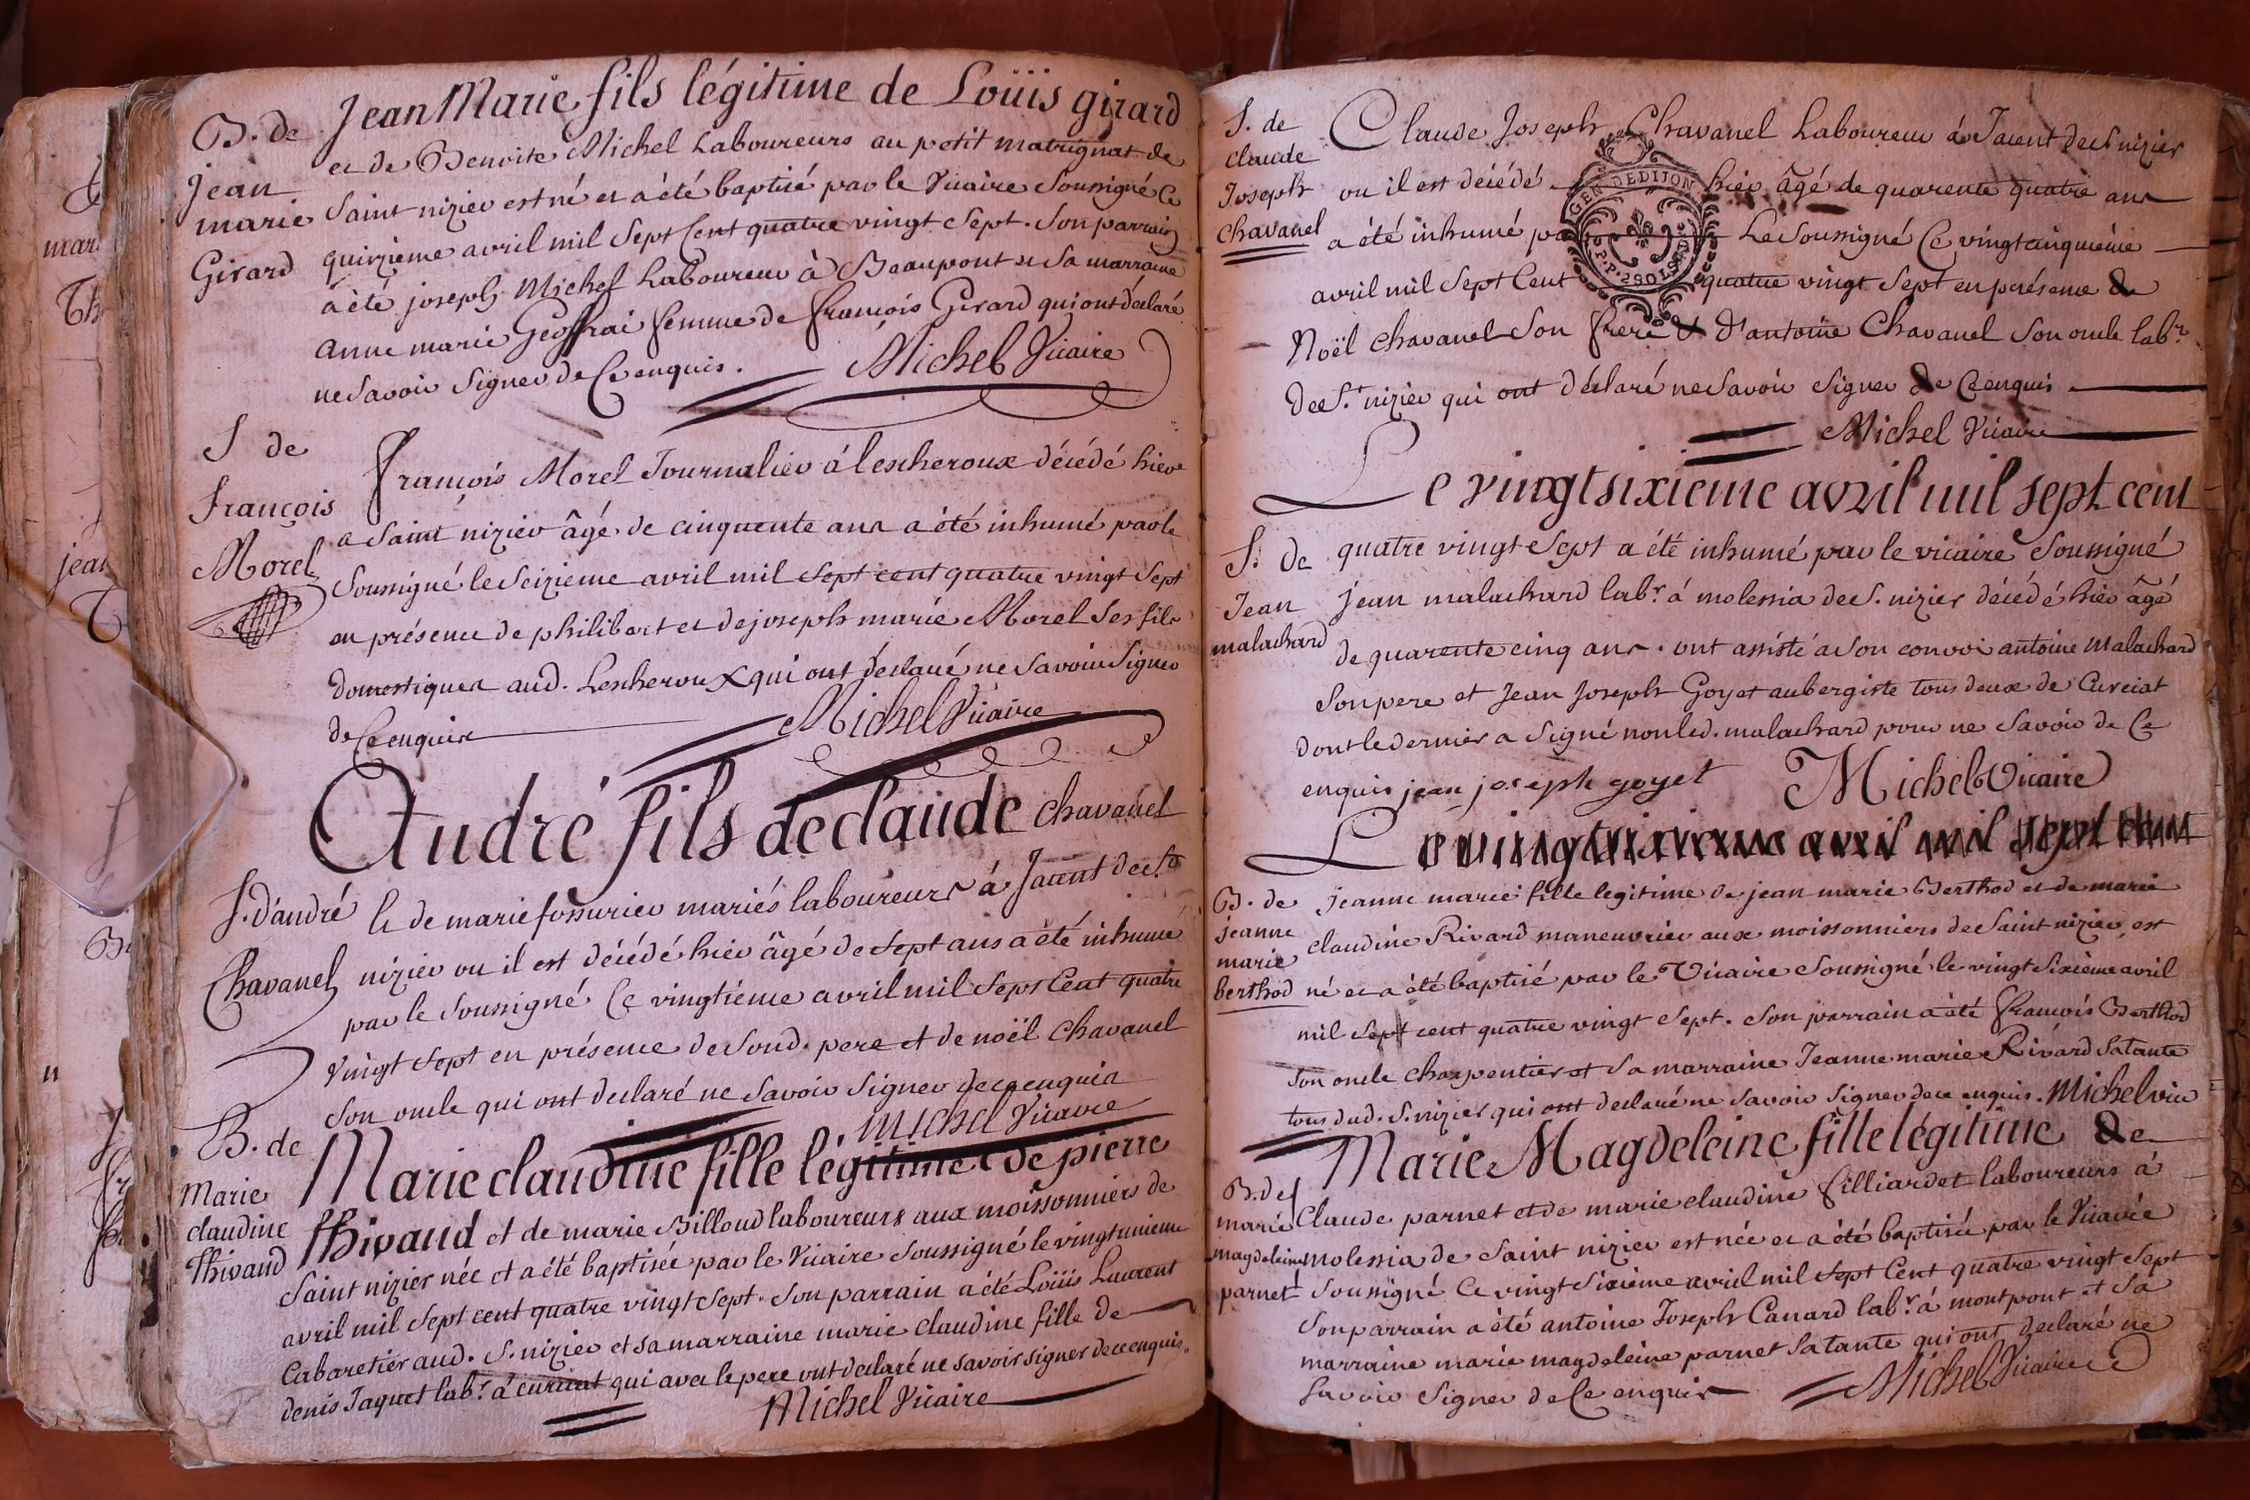 B. de
Jean
marie
Girard
Jean Marie fils légitime de Loüis girard
et de Benoite Michel Laboureurs au petit matrignat de
Saint nizier est né et a été baptisé par le Vicaire Soussigné Ce
quinzieme avril mil Sept Cent quatre vingt Sept. Son parrain
a été joseph Michel Laboureur à Beaupont et Sa marraine
anne marie Geoffrai femme de françois Girard qui ont déclaré
ne Savoir Signer de Ce enquis.
Michel Vicaire
S de
françois
Morel
François Morel Journalier à lescheroux décédé hier
a Saint nizier âgé de cinquante ans a été inhumé par le
Soussigné le Seizieme avril mil Sept cent quatre vingt Sept
en présence de philibert et de joseph marie Morel Ses fils
domestiques aud. Lescheroux qui ont déclaré ne Savoir Signer
de Ce enquis
Michel Vicaire
S. d'andré
Chavanel
André fils de claude chavanel
& de marie fossurier mariés laboureurs à Jacent de St.
nizier ou il est décédé hier âgé de Sept ans a été inhumé
par le Soussigné Ce vingtiéme avril mil Sept Cent quatre
vingt Sept en présence de Sond. pere et de noël chavanel
Son oncle qui ont declaré ne Savoir Signer de ce enquis
Michel Vicaire
B. de
Marie
claudine
Thivaud
Marie claudine fille légitime de pierre
Thivaud et de marie Billoud laboureurs aux moissonniers de
Saint nizier née et a été baptisée par le Vicaire Soussigné le vingtunieme
avril mil Sept cent quatre vingt Sept. Son parrain a été Loüis Laurent
Cabaretier aud. S. nizier et sa marraine marie claudine fille de
denis Jaquet labr. à curciat qui avec le pere ont declaré ne savoir signer de ce enquis.
Michel Vicaire
S. de
claude
Joseph
Chavanel
Claude Joseph Chavanel Laboureur à Jacent de St nizier
ou il est décédé hier âgé de quarente quatre ans
GEN. DE DIJON
a été inhumé par Le Soussigné Ce vingtcinquieme
avril mil Sept Cent quatre vingt Sept en présence de
Noël chavanel Son frere & d'antoine Chavanel Son oncle labr.
de St. nizier qui ont déclaré ne Savoir Signer de Ce enquis
Michel Vicaire
Le vingtsixieme avril mil sept cent
S. de
Jean
malachard
quatre vingt Sept a été inhumé par le vicaire Soussigné
Jean malachard labr. à molessia de S. nizier décédé hier âgé
de quarente cinq ans. ont assisté a Son convoi antoine Malachard
Son pere et Jean Joseph Goyet aubergiste tous deux de Curciat
dont le dernier a Signé non led. malachard pour ne Savoir de Ce
enquis jean joseph goyet Michel Vicaire
Le vingtsixieme avril mil sept cent
B. de
jeanne
marie
berthod
jeanne marie fille legitime de jean marie Berthod et de marie
claudine Rivard maneuvrier aux moissonniers de Saint nizier, est
né et a été baptisé par le Vicaire Soussigné le vingt Sixiéme avril
mil Sept cent quatre vingt Sept. Son parrain a été François Berthod
Son oncle charpentier et Sa marraine Jeanne marie Rivard Sa tante
tous dud. S. nizier qui ont declaré ne Savoir Signer de ce enquis. Michel vic
B. de
marie
magdeleine
parnet
Marie Magdeleine fille légitime de
Claude parnet et de marie claudine Cilliardet laboureurs à
molessia de Saint nizier est née et a été baptisée par le Vicaire
Soussigné Ce vingt Sixième avril mil Sept Cent quatre vingt Sept
Son parrain a été antoine Joseph Canard labr. à montpont et Sa
marraine marie magdeleine parnet Sa tante qui ont declaré ne
Savoir Signer de Ce enquis
Michel Vicaire